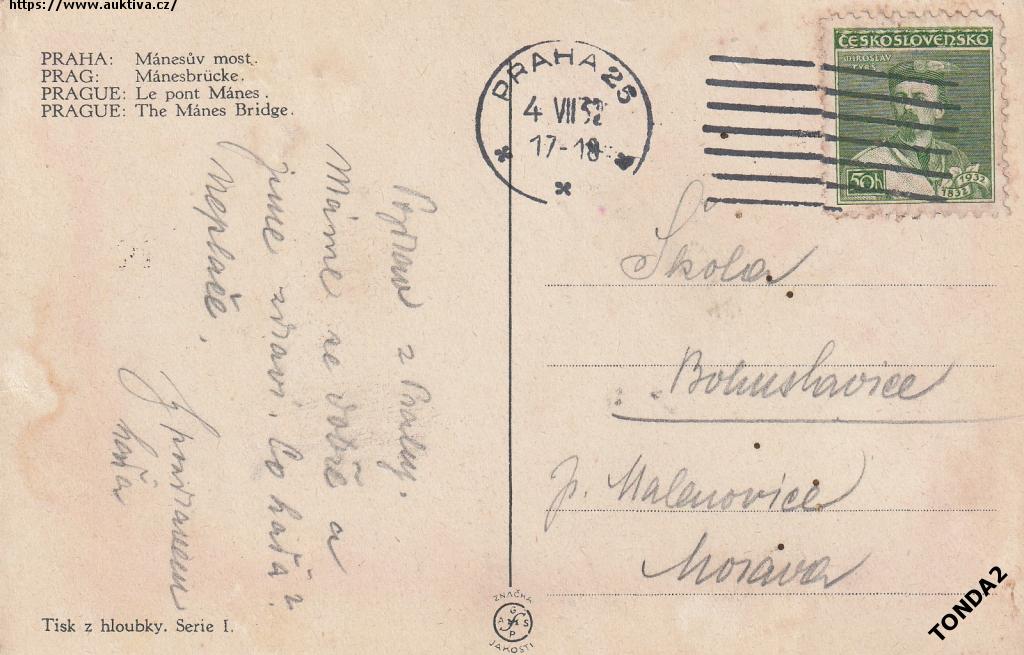 https://www.auktiva.cz/
PRAHA: Mánesův most.
PRAG: Mánesbrücke.
PRAGUE: Le pont Mánes.
PRAGUE: The Mánes Bridge.
PRAHA 25
4 VII 32
17-18
ČESKOSLOVENSKO
MIROSLAV
TYRŠ
50h
1932
1832
Pozdrav z Prahy.
Máme se dobře a
jsme zdraví. Co haďa?
Nepláče.
S pozdravem
haďa
Škola
Bohuslavice
p. Malenovice
Morava
Tisk z hloubky. Serie I.
ZNAČKA
JAKOSTI
TONDA2